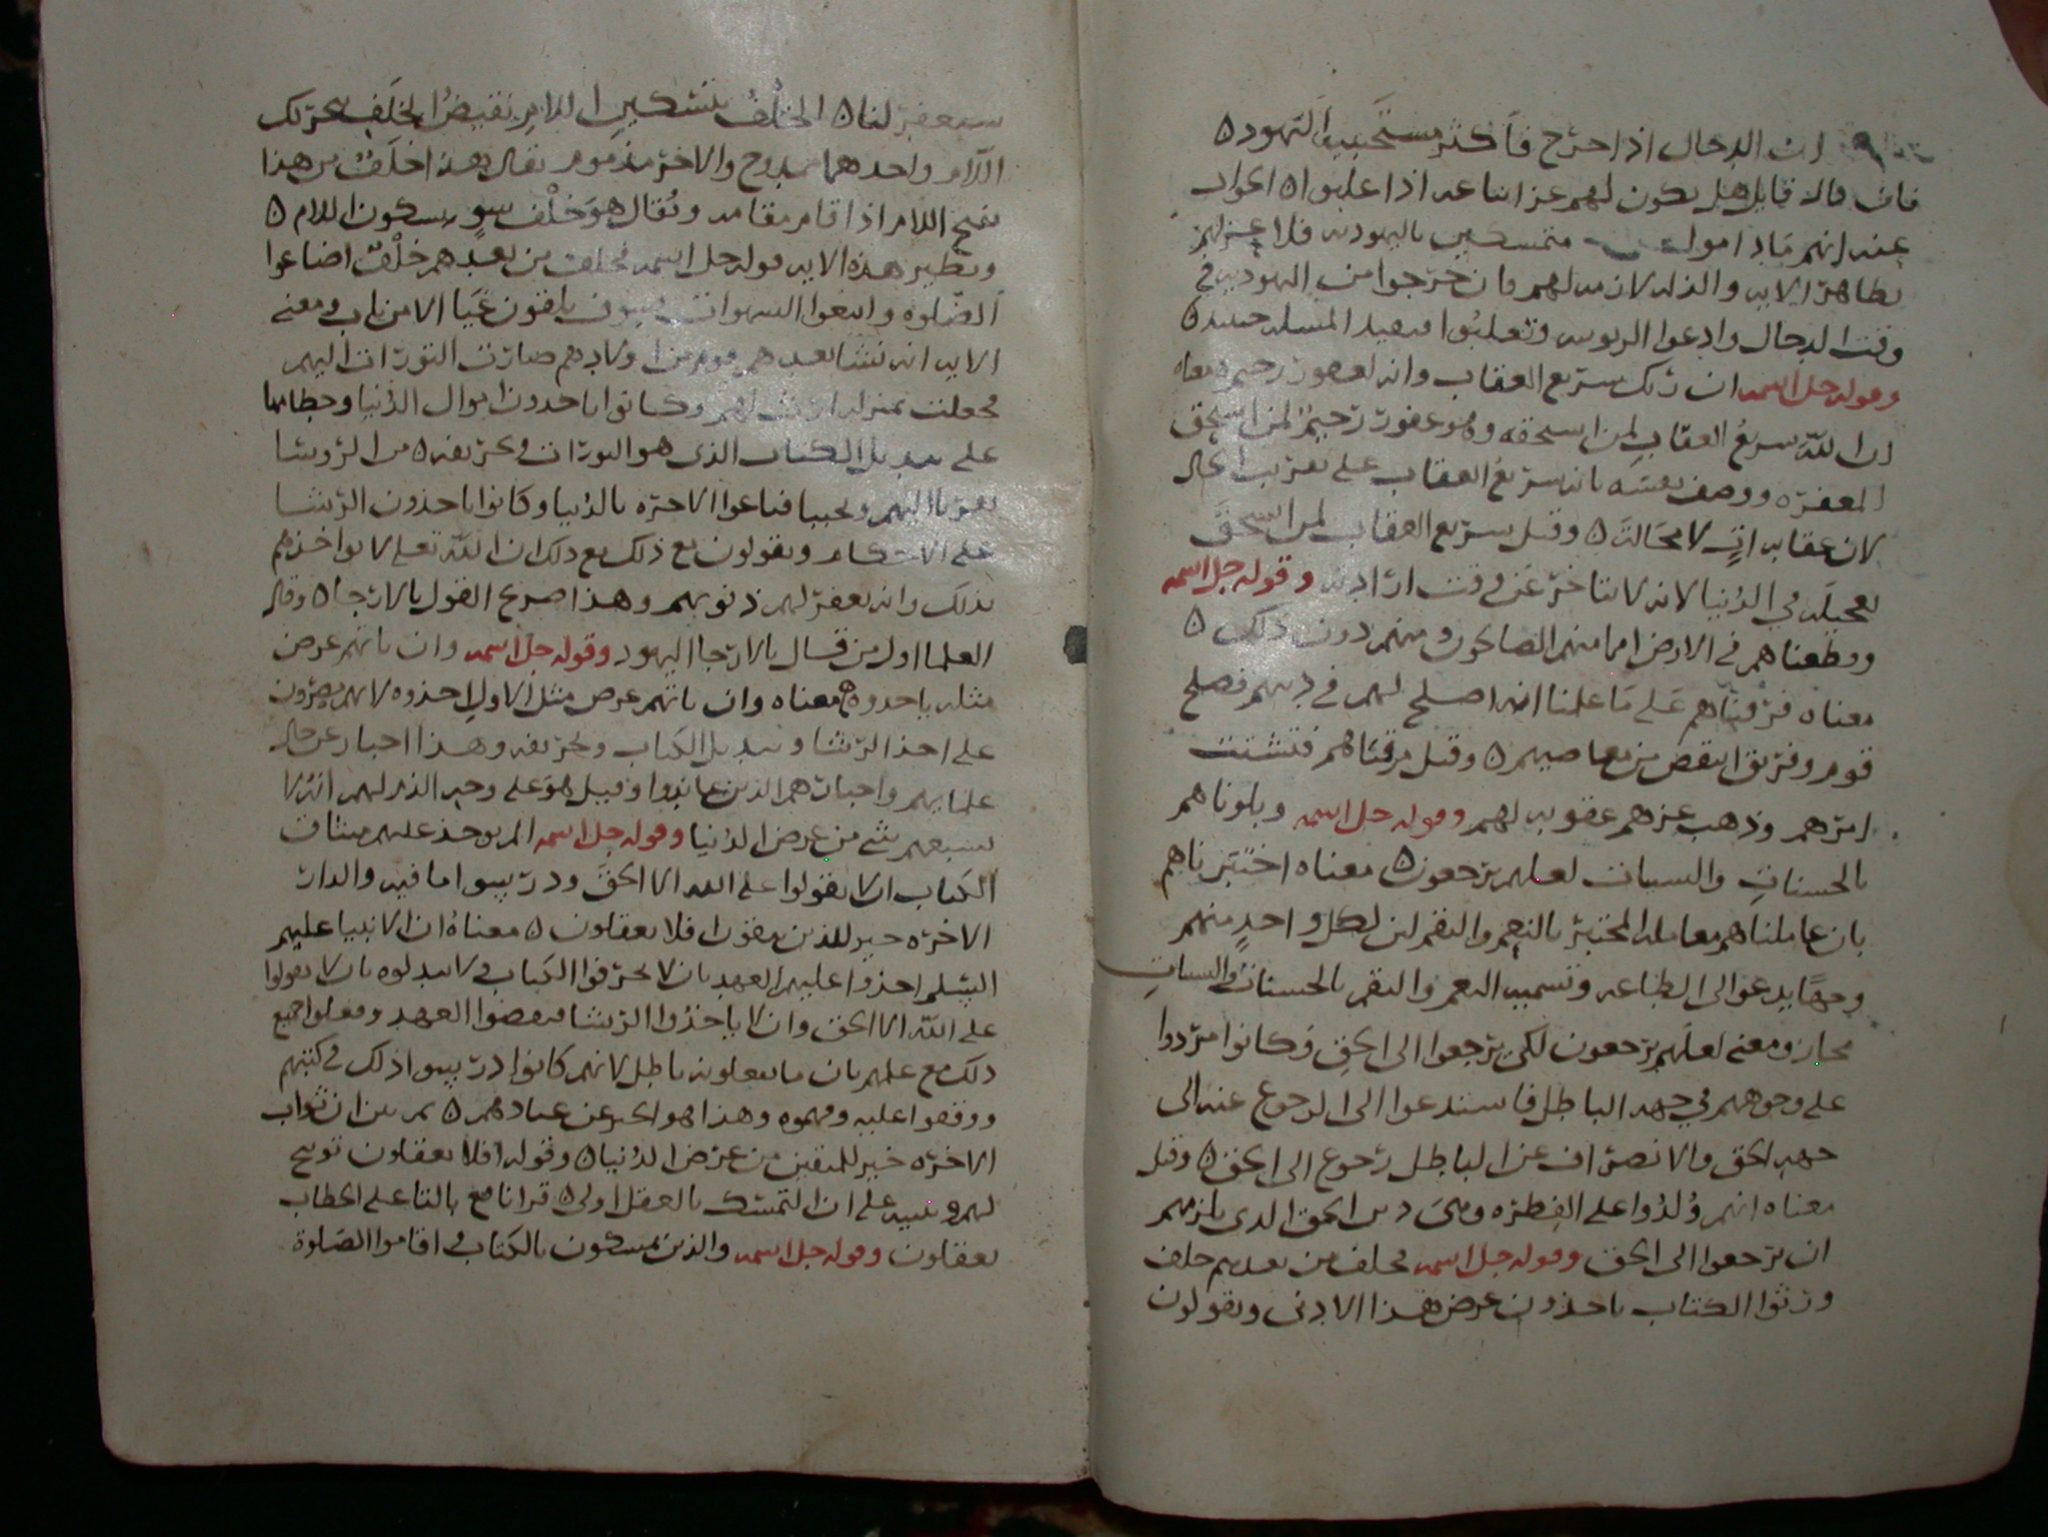 ان الدجال اذا خرج فاكثر مستجيبيه اليهود ه
فان قال قايل هل يكون لهم عز اتباعه اذا غلبوا ه الجواب
عنه انهم ما داموا متمسكين باليهوديه فلا عز لهم
بظاهر الايه والذله لازمه لهم فان خرجوا من اليهوديه في
وقت الدجال وادعوا الربوبيه وتغلبوا المسله حينيذ ه
وقوله جل اسمه ان ربك سريع العقاب وانه لغفور رحيم ه معناه
ان الله سريع العقاب لمن استحقه وهو غفور رحيم لمن استحق
المغفره ووصف نفسه بانه سريع العقاب على تقريب الحال
لان عقابه ات لا محالة ه وقيل سريع العقاب لمن استحق
تعجيله في الدنيا لانه لا يتاخر عن وقت ارادته وقوله جل اسمه
وقطعناهم في الارض امما منهم الصالحون ومنهم دون ذلك ه
معناه فرقناهم على ما علمنا انه اصلح لهم في دينهم فصلح
قوم وفريق انتقض من معاصيهم ه وقيل فرقناهم فتشتت
امرهم وذهب عزهم عقوبه لهم وقوله جل اسمه وبلوناهم
بالحسنات والسيات لعلهم يرجعون ه معناه اختبرناهم
بان عاملناهم معامله المختبر بالنعم والنقم لان لكل واحد منهم
وجها يدعو الى الطاعه وتسميه النعم والنقم بالحسنات والسيات
مجاز ومعنى لعلهم يرجعون لكي يرجعوا الى الحق وكانوا مردوا
على وجوههم في جهه الباطل فاستدعوا الى الرجوع عنه الى
جهه الحق والانصراف عن الباطل رجوع الى الحق ه وقيل
معناه انهم ولدوا على الفطره وهي دين الحق الذي يلزمهم
ان يرجعوا الى الحق وقوله جل اسمه فخلف من بعدهم خلف
ورثوا الكتاب ياخذون عرض هذا الادنى ويقولون
سيغفر لنا ه الخلف بتسكين اللام نقيض الخلف بتحريك
اللام واحدهما ممدوح والاخر مذموم يقال هذا خلف من هذا
بفتح اللام اذا قام مقامه ويقال هو خلف سو بسكون اللام ه
ونظير هذه الايه قوله جل اسمه فخلف من بعدهم خلف اضاعوا
الصلوه واتبعوا الشهوات فسوف يلقون غيا الا من تاب ومعنى
الايه انه نشا بعدهم قوم من اولادهم صارت التورات اليهم
فجعلت بمنزله ارث لهم وكانوا ياخذون اموال الدنيا وحطامها
على تبديل الكتاب الذي هو التورات وتحريفه ه من الروسا
تقربا اليهم وتحببا فباعوا الاخره بالدنيا وكانوا ياخذون الرشا
على الاحكام ويقولون مع ذلك مع ذلك ان الله تعلى لا يواخذهم
بذلك وانه يغفر لهم ذنوبهم وهذا صريح القول بالارجا ه وقال
العلما اول من قال بالارجا اليهود وقوله جل اسمه وان ياتهم عرض
مثله ياخذوه ه معناه وان ياتهم عرض مثل الاول اخذوه لانهم يصرون
على اخذ الرشا وتبديل الكتاب وتحريفه وهذا اخبار عن حال
علمايهم واحبارهم الذين عاندوا وقيل هو على وجه الذم لهم انه لا
يشبعهم شي من عرض الدنيا وقوله جل اسمه الم يوخذ عليهم ميثاق
الكتاب ان لا يقولوا على الله الا الحق ودرسوا ما فيه والدار
الاخره خير للذين يتقون افلا يعقلون ه معناه ان الانبيا عليهم
السلم اخذوا عليهم العهد بان لا يحرفوا الكتاب ولا يبدلوه بان لا يقولوا
على الله الا الحق وان لا ياخذوا الرشا فنقضوا العهد وفعلوا جميع
ذلك مع علمهم بان ما يفعلونه باطل لانهم كانوا درسوا ذلك في كتبهم
ووقفوا عليه وفهموه وهذا هو الخبر عن عنادهم ه ثم بين ان ثواب
الاخره خير للمتقين من عرض الدنيا ه وقوله افلا يعقلون توبيخ
لهم وتنبيه على ان التمسك بالعقل اولى ه قرا نافع بالتا على الخطاب
تعقلون وقوله جل اسمه والذين يمسكون بالكتاب واقاموا الصلوة